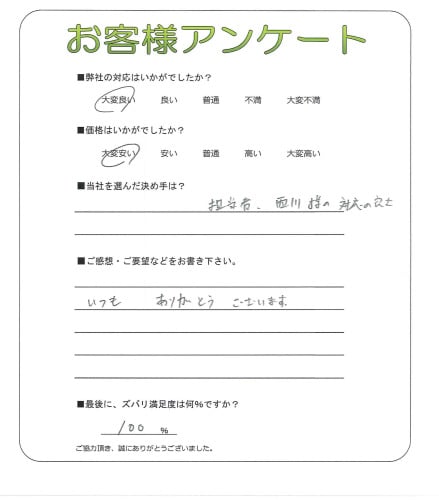 お客様アンケート
■弊社の対応はいかがでしたか?
大変良い 良い 普通 不満 大変不満
■価格はいかがでしたか?
大変安い 安い 普通 高い 大変高い
■当社を選んだ決め手は?
担当者、西川様の対応の良さ
■ご感想・ご要望などをお書き下さい。
いつも ありがとう ございます
■最後に、ズバリ満足度は何%ですか?
100 %
ご協力頂き、誠にありがとうございました。